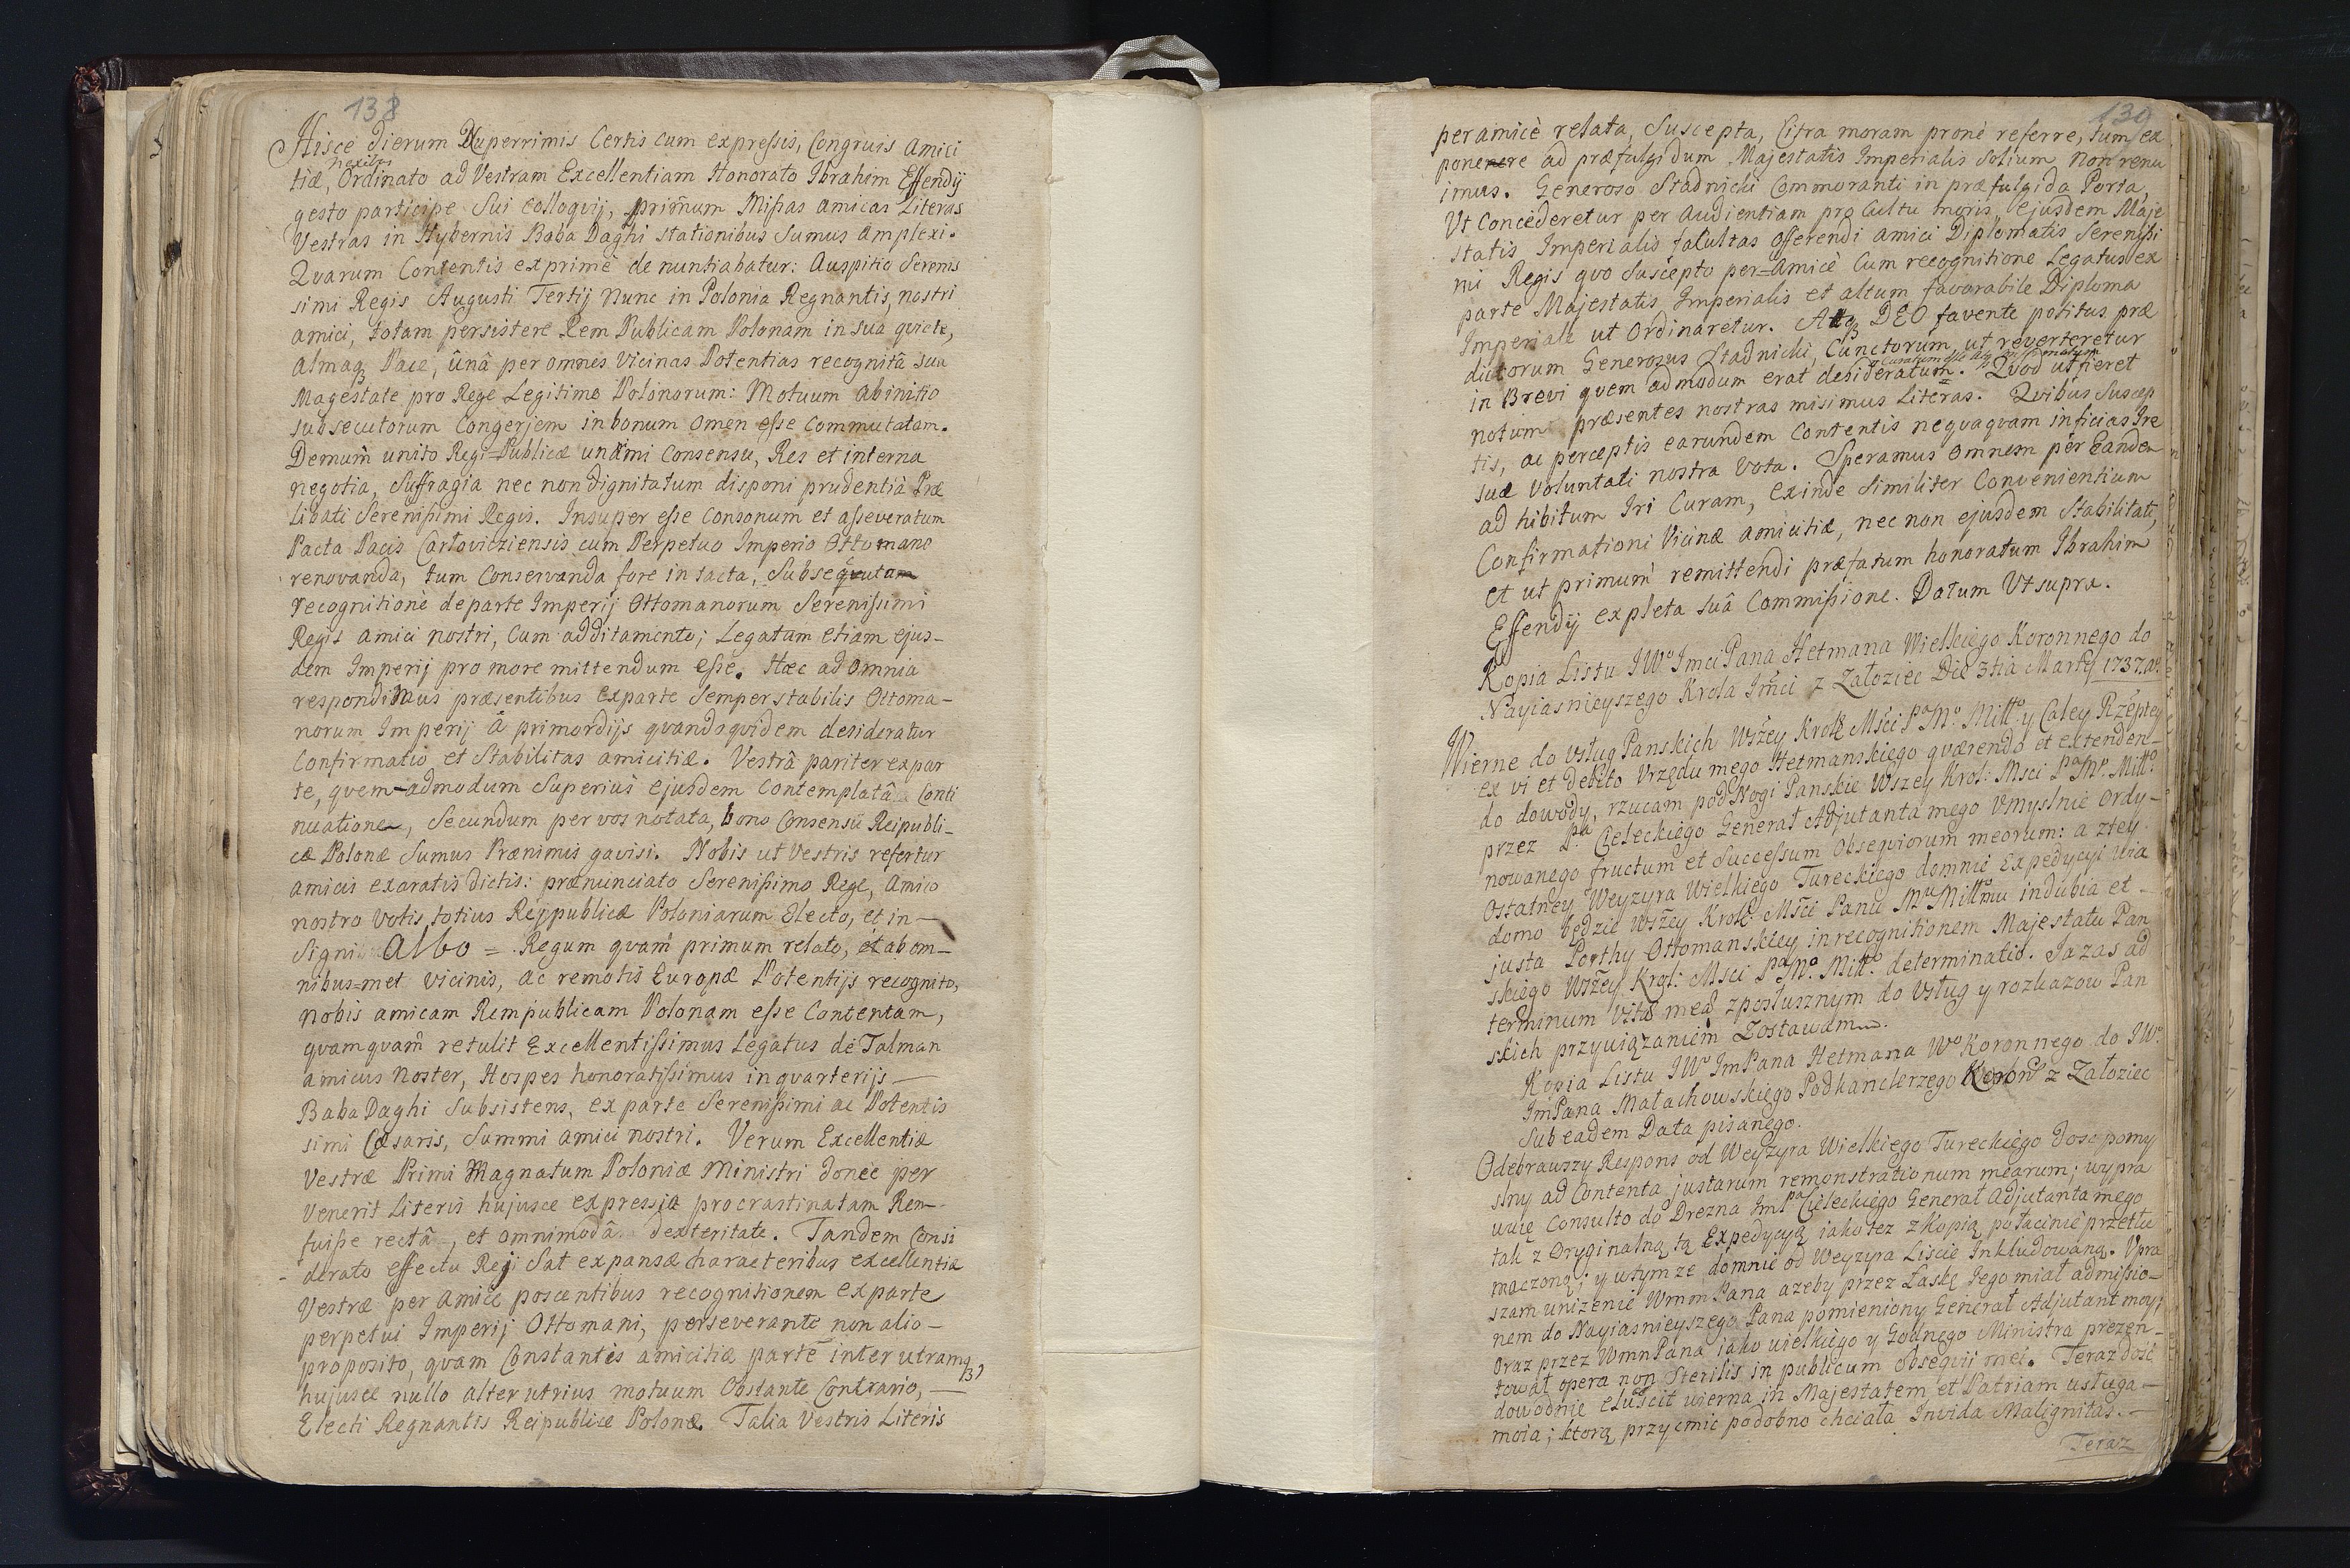 138
Hisce dierum Nuperrimis Certis cum expressis, Congruis Amici
nexibus
tiæ, Ordinato ad Vestram Excellentiam Honorato Ibrahim Effendij
gesto participe Sui colloquij, primum Missas amicas Literas
Vestras in Hybernis Baba Daghi stationibus Sumus Amplexi.
Quarum Contentis exprimè denuntiabatur: Auspitio Serenis
simi Regis Augusti Tertij Nunc in Polonia Regnantis, nostri
amici, totam persistere Rem Publicam Polonam in sua quiete,
almaq3 Pace, ûnâ per omnes Vicinas Potentias recognitâ sua
Magestate pro Rege Legitimo Polonorum: Motuum abinitio
subsecutorum Congerjem in bonum Omen esse Commutatam.
Demum unito Regi-Publicæ unâmi Consensu, Res et interna
negotia, Suffragia nec non dignitatum disponi prudentià Præ
libati Serenissimi Regis. Insuper esse Consonum et asseveratum
Pacta Pacis Cartovicziensis cum Perpetuo Imperio Ottomano
renovanda, tum Conservanda fore intacta, Subsequutam
recognitionè de parte Imperij Ottomanorum Serenissimi
Regis amici nostri, Cum additamento; Legatum etiam ejus-
dem Imperij pro more mittendum esse. Hæc ad Omnia
respondimus præsentibus exparte Semper stabilis Ottoma-
norum Imperij â primordijs quandoquidem desideratur
Confirmatio et Stabilitas amicitiæ. Vestrâ pariter expar
te, quem-admodum Superiùs ejusdem Contemplatâ Conti
nuatione, Secundum per vos notata, bono Consensu Reipubli-
cæ Polonæ Sumus Prænimis gavisi. Nobis ut Vestris refertur
amicis exaratis dictis: prænunciato Serenissimo Rege, Amico
nostro Votis totius Reipublicæ Poloniarum Electo, et in-
Signi Albo = Regum quam primum relato, et ab om-
nibus=met vicinis, ac remotis Europæ Potentijs recognito,
nobis amicam Rempublicam Polonam esse Contentam,
quamquam retulit Excellentissimus Legatus de Talman
amicus Noster, Hospes honoratissimus in quarterijs —
Baba Daghi Subsistens, ex parte Serenissimi ac Potentis
simi Cæsaris, Summi amici nostri. Verum Excellentiæ
Vestræ Primi Magnatum Poloniæ Ministri donec per
Venerit Literis hujusce expressia procrastinatam Rem
fuisse rectâ, et omnimodâ dexteritate. Tandem Consi
derato effectu Rej Sat expansæ characteribus excellentiæ
Vestræ per amicè poscentibus recognitionem ex parte
perpetui Imperij Ottomani, perseverante non alio-
proposito, quam Constantis amicitiæ parte inter utramq3
hujusce nullo alterutrius motuum Obstante Contrario, —
Electi Regnantis Reipublicæ Polonæ. Talia Vestris Literis
139
peramicè relata, Suscepta, Citra moram pronè referre, tum ex
ponere ad præfulgidum Majestatis Imperialis Solium non renu
imus. Generoso Stadnicki Commoranti in præfulgida Porta,
Ut Concederetur per Audientiam pro Cultu moris, ejusdem Maje
statis Imperialis facultas Offerendi amici Diplomatis Serenissi
mi Regis quo Suscepto per-Amicè Cum recognitione Legatus ex
parte Majestatis Imperialis et altum favorabile Diploma
Imperiale ut Ordinaretur. Atq3 DEO favente potitus præ
dictorum Generosus Stadnicki, Cunctorum, ut reverteretur
in Brevi quem admodum erat desideratum. Quod ut fieret
notum præsentes nostras misimus Literas. Quibus Suscep
tis, ac perceptis earundem Contentis nequaquam inficias Ire
suæ Voluntati nostra Vota. Speramus Omnem per Eandem
ad hibitum Iri Curam, exinde Similiter Convenientium
Confirmationi Vicinæ amicitiæ, nec non ejusdem Stabilitati,
et ut primum remittendi præfatum honoratum Ibrahim
Effendij expleta suâ Commissione. Datum Ut supra.
Kopia Listu JWo Imci Pana Hetmana Wielkiego Koronnego do
Nayiasnieyszego Krola Imci z Załoziec Die 3tia Martij 1737. ao.
Wierne do Usług Panskich Wszey Krolę Msci Pa Mo Mitto y Całey Rzeptey
ex vi et debito Urzędu mego Hetmanskiego quærendo et extenden-
do dowody, rzucam pod Nogi Panskie Wszey Krol: Msci Pa Mo Mitto
przez Pa Cieleckiego Generał Adjutanta mego Umyslnie Ordy-
nowanego fructum et Successum Obsequiorum meorum: a ztey
Ostatney Weyzyra Wielkiego Tureckiego domnie Expedycyi wia
domo będzie Wszey Krolę Msci Panu Mu Mittmu indubia et -
justa Porthy Ottomanskiey in recognitionem Majestatu Pan
skiego Wszey Krol: Msci Pa Mo Mitto determinatio. Ja zas ad
terminum Vitæ meæ z posłusznym do Usług y rozkazow Pan
skich przywiązaniem Zostawam.
Kopia Listu JWo Im Pana Hetmana Wo Koronnego do JWo
Im Pana Małachowskiego Podkanclerzego Koron z Załoziec
Sub eadem Data pisanego.
Odebrawszy Respons od Weyzyra Wielkiego Tureckiego dosc pomy
slny ad Contenta justarum remonstrationum mearum; wypra
wuię Consulto do Drezna Im Pa Cieleckiego Generał Adjutanta mego
tak z Oryginalną tą Expedycyą iako tez z Kopią po łacinie przetłu
maczoną; y w tym ze domnie od Weyzyra Liscie Inkludowaną. Upra
szam unizenie Wmm Pana azeby przez Łaskę Jego miał admissio-
nem do Nayiasnieyszego Pana pomieniony Generał Adjutant moy;
Oraz przez Wmm Pana iako wielkiego y Godnego Ministra prezen-
tował opera non Sterilis in publicum Obsequii mei. Teraz dosc
dowodnie eluscit wierna in Majestatem et Patriam usługa -
moia; ktorą przycmic podobno chciała Invida Malignitas. -
Teraz